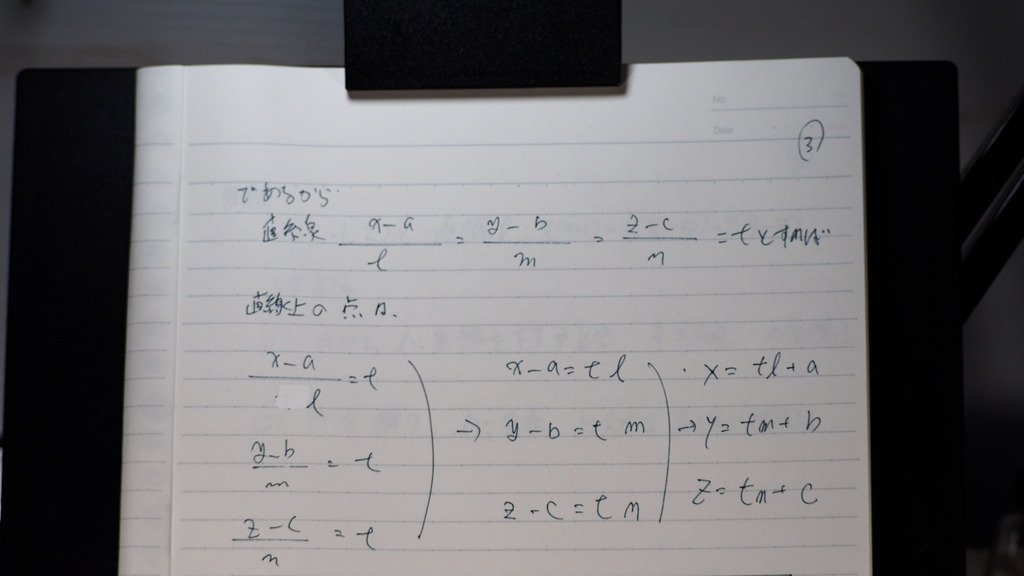 No.
Date
③
であるから
直線 x-a/l = y-b/m = z-c/n = t とすれば
直線上の点は、
x-a/l = t
y-b/m = t
z-c/n = t
→
x-a = tl
y-b = t m
z-c = t n
→
x = tl + a
y = tm + b
z = tn + c